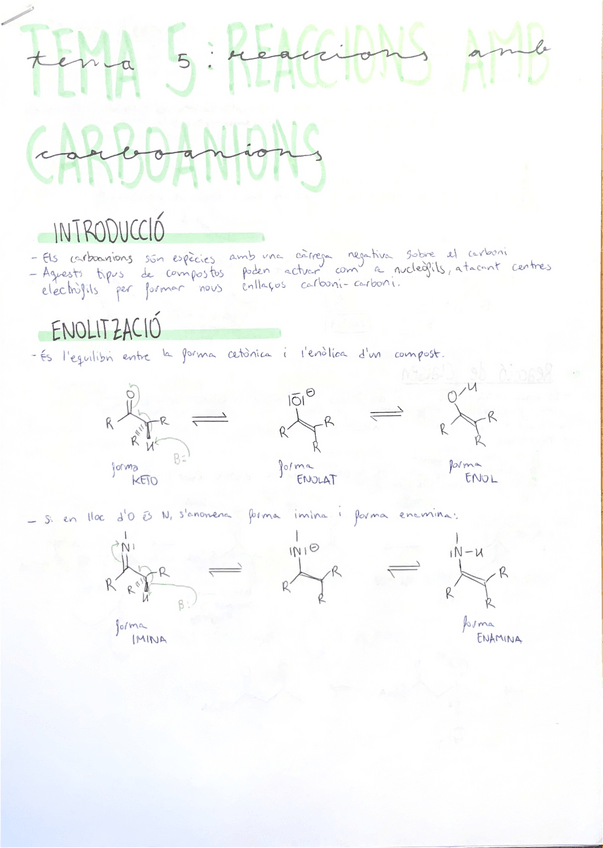 TEMA 5: REACCIONS AMB
tema 5: reaccions amb
CARBOANIONS
carboanions
INTRODUCCIÓ
- Els carboanions són espècies amb una càrrega negativa sobre el carboni
- Aquests tipus de compostos poden actuar com a nucleòfils, atacant centres
electròfils per formar nous enllaços carboni-carboni.
ENOLITZACIÓ
- És l'equilibri entre la forma cetònica i l'enòlica d'un compost.
O |O|⊖ O-H
R R R H B: R R R R R R
forma KETO forma ENOLAT forma ENOL
- Si en lloc d'O és N, s'anomena forma imina i forma enamina:
N| |N|⊖ |N-H
R R R H B: R R R R R R
forma IMINA forma ENAMINA